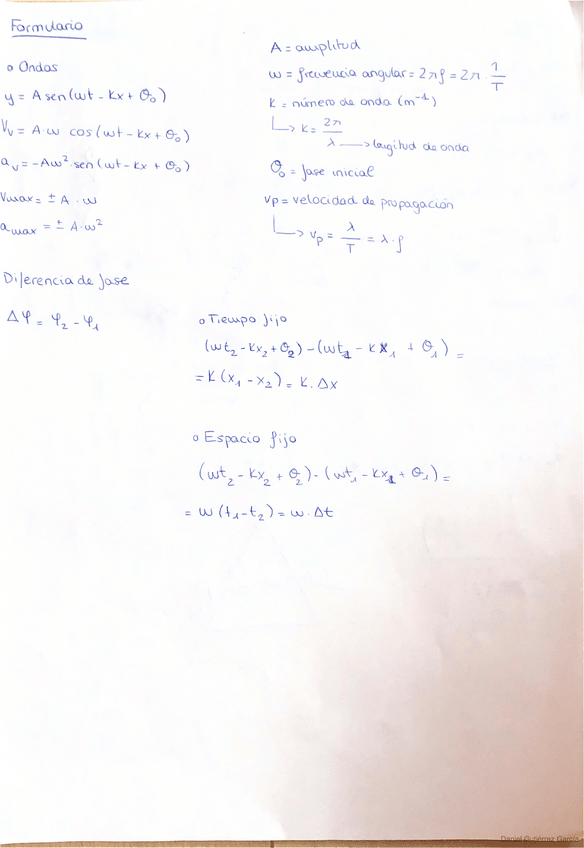 Formulario
o Ondas
y = A sen (wt - Kx + θ₀)
Vᵥ = A·w cos (wt - Kx + θ₀)
aᵥ = -Aw² · sen (wt - Kx + θ₀)
Vmax = ± A · w
amax = ± A·w²
A = amplitud
w = frecuencia angular = 2πf = 2π · 1/T
K = número de onda (m⁻¹)
↳ K = 2π/λ → longitud de onda
θ₀ = fase inicial
vp = velocidad de propagación
↳ vp = λ/T = λ·f
Diferencia de fase
Δφ = φ₂ - φ₁
o Tiempo fijo
(wt₂ - Kx₂ + θ₂) - (wt₁ - Kx₁ + θ₁) =
= K (x₁ - x₂) = K. Δx
o Espacio fijo
(wt₂ - Kx₂ + θ₂) - (wt₁ - Kx₁ + θ₁) =
= w (t₁ - t₂) = w · Δt
Daniel Gutiérrez García